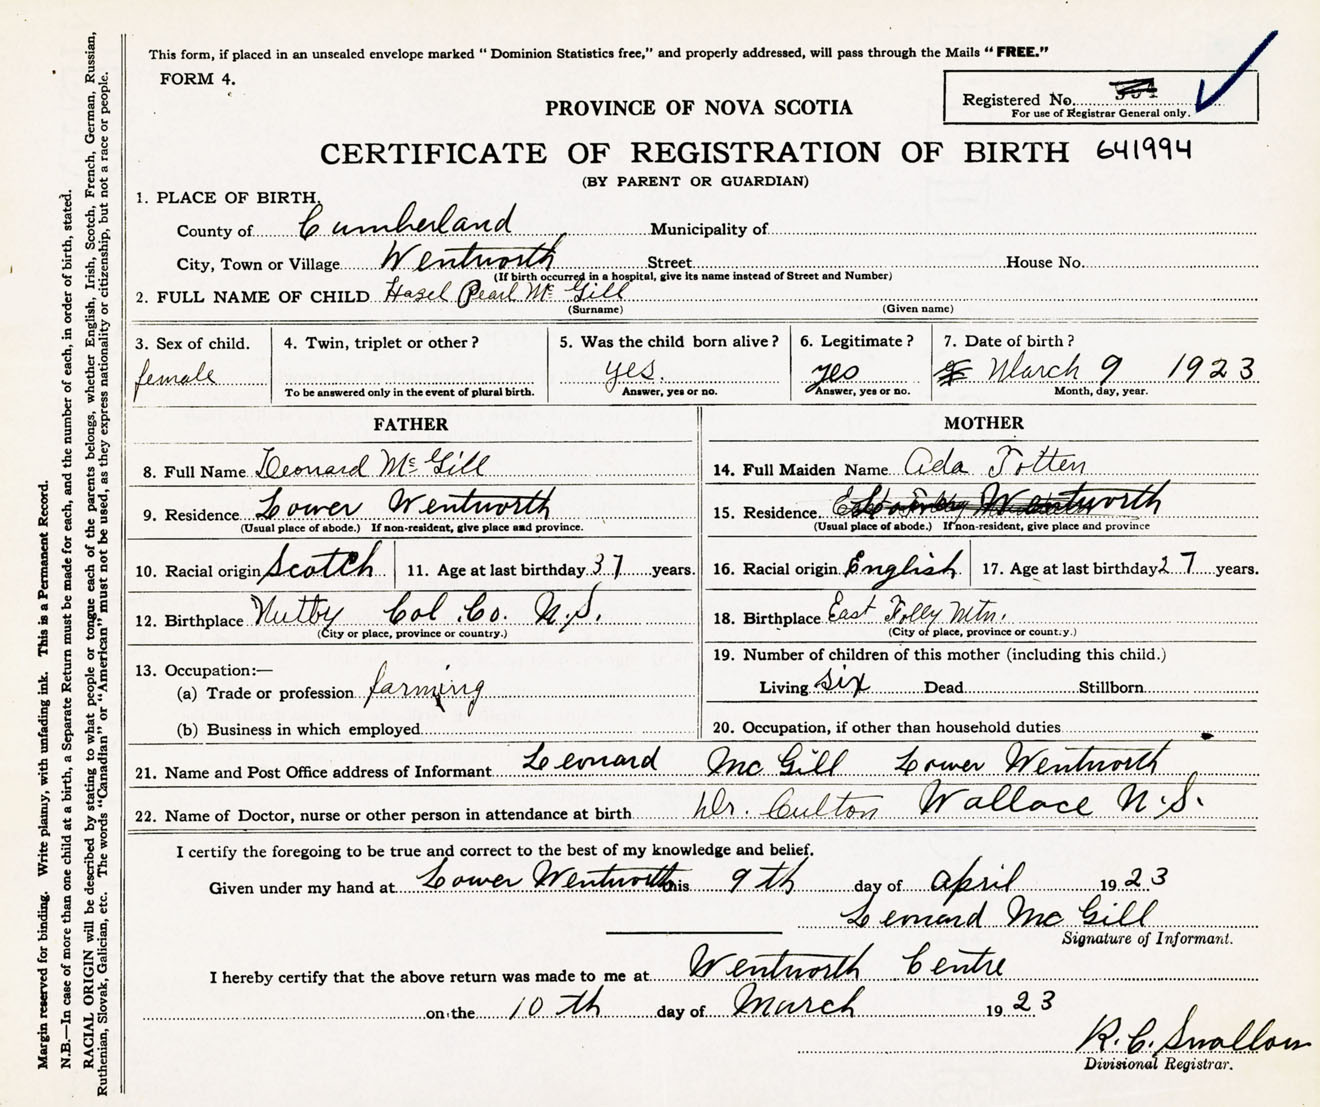 This form, if placed in an unsealed envelope marked "Dominion Statistics free," and properly addressed, will pass through the Mails "FREE."
FORM 4.
Registered No.
For use of Registrar General only.
PROVINCE OF NOVA SCOTIA
CERTIFICATE OF REGISTRATION OF BIRTH 641994
(BY PARENT OR GUARDIAN)
1. PLACE OF BIRTH.
County of Cumberland Municipality of
City, Town or Village Wentworth Street House No.
(If birth occurred in a hospital, give its name instead of Street and Number)
2. FULL NAME OF CHILD Hazel Pearl Mc Gill
(Surname) (Given name)
3. Sex of child. female
4. Twin, triplet or other?
To be answered only in the event of plural birth.
5. Was the child born alive? yes.
Answer, yes or no.
6. Legitimate? yes
Answer, yes or no.
7. Date of birth? March 9 1923
Month, day, year.
FATHER
8. Full Name Leonard Mc Gill
9. Residence Lower Wentworth
(Usual place of abode.) If non-resident, give place and province.
10. Racial origin Scotch 11. Age at last birthday 37 years.
12. Birthplace Nutby Col. Co. N.S.
(City or place, province or country.)
13. Occupation:—
(a) Trade or profession farming
(b) Business in which employed
MOTHER
14. Full Maiden Name Ada Totten
15. Residence. Wentworth
(Usual place of abode.) If non-resident, give place and province
16. Racial origin English 17. Age at last birthday 27 years.
18. Birthplace East Folly Mtn.
(City of place, province or country.)
19. Number of children of this mother (including this child.)
Living six Dead Stillborn
20. Occupation, if other than household duties
21. Name and Post Office address of Informant Leonard Mc Gill Lower Wentworth
22. Name of Doctor, nurse or other person in attendance at birth Dr. Culton Wallace N.S.
I certify the foregoing to be true and correct to the best of my knowledge and belief.
Given under my hand at Lower Wentworth this 9th day of April 1923
Leonard Mc Gill
Signature of Informant.
I hereby certify that the above return was made to me at Wentworth Centre
on the 10th day of March 1923
R. C. Swallow
Divisional Registrar.
Margin reserved for binding. Write plainly, with unfading ink. This is a Permanent Record.
N.B.—In case of more than one child at a birth, a Separate Return must be made for each, and the number of each, in order of birth, stated.
RACIAL ORIGIN will be described by stating to what people or tongue each of the parents belongs, whether English, Irish, Scotch, French, German, Russian,
Ruthenian, Slovak, Galician, etc. The words "Canadian" or "American" must not be used, as they express nationality or citizenship, but not a race or people.